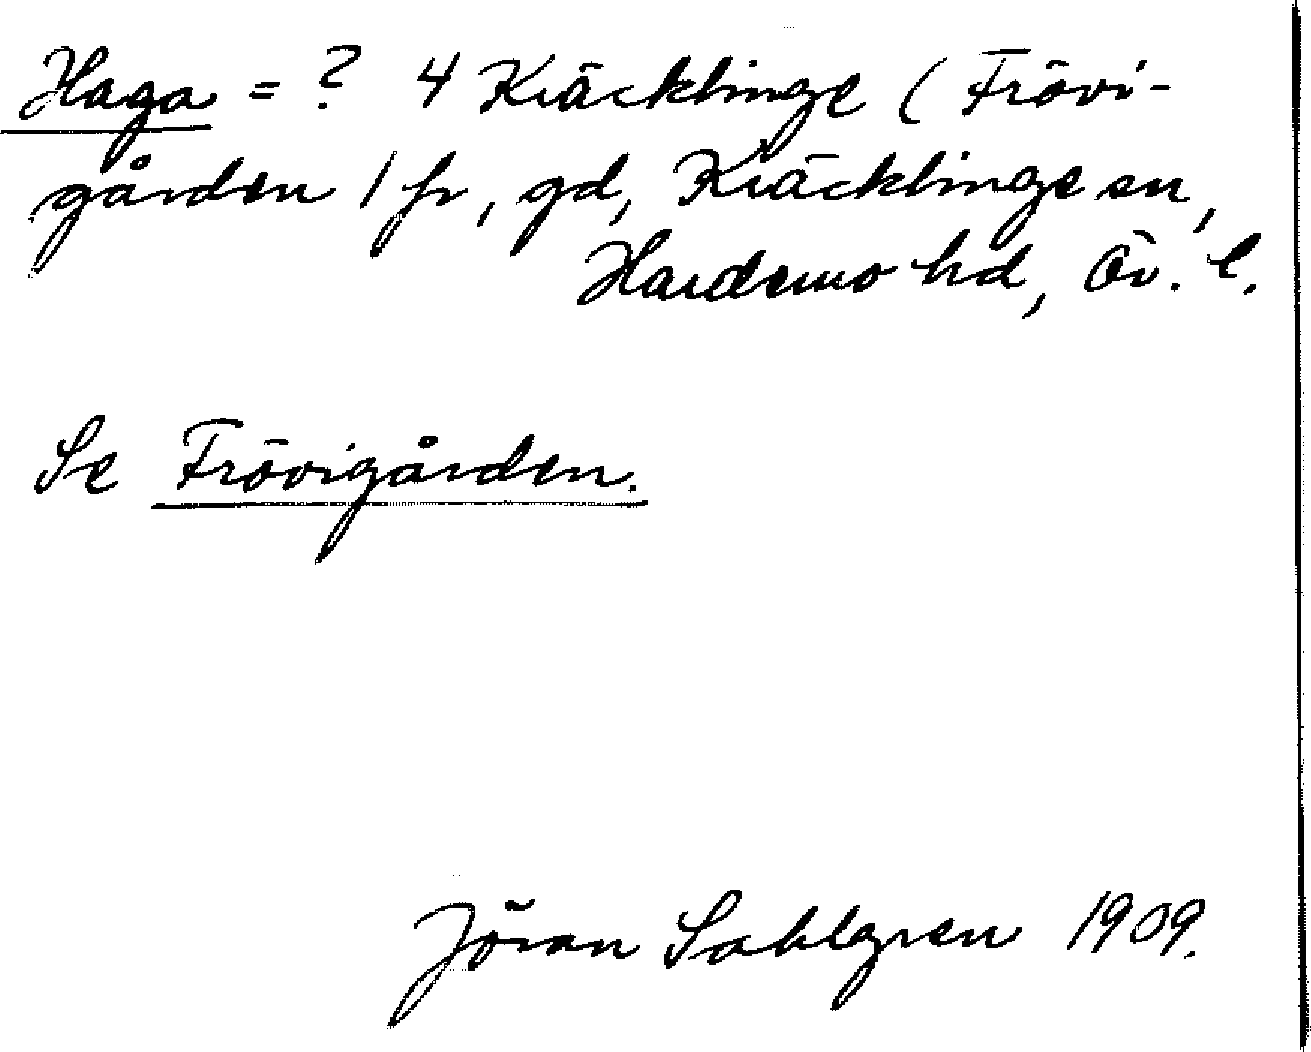 Haga = ? 4 Kräcklinge (Frövi-
gården / fr, gd, Kräcklinge sn,
Hardemo hd, Ör. l.
Se Frövigården.
Jöran Sahlgren 1909.